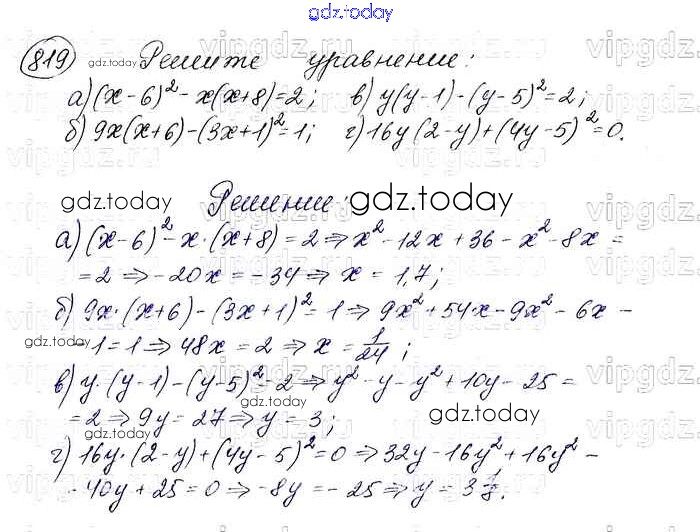 gdz.today
819 gdz.today Решите уравнение:
а) (x-6)² - x(x+8)=2; в) y(y-1)-(y-5)²=2;
б) 9x(x+6)-(3x+1)²=1; г) 16y(2-y)+(4y-5)²=0.
gdz.today Решение: gdz.today
а) (x-6)² - x·(x+8)=2 ⇒ x² - 12x + 36 - x² - 8x =
= 2 ⇒ -20x = -34 ⇒ x = 1,7;
б) 9x·(x+6)-(3x+1)²=1 ⇒ 9x² + 54x - 9x² - 6x -
gdz.today - 1 = 1 ⇒ 48x = 2 ⇒ x = 1/24;
в) y·(y-1)-(y-5)²=2 ⇒ y² - y - y² + 10y - 25 =
= 2 ⇒ 9y = 27 ⇒ y = 3; gdz.today gdz.today
gdz.today
г) 16y·(2-y)+(4y-5)²=0 ⇒ 32y - 16y² + 16y² -
- 40y + 25 = 0 ⇒ -8y = -25 ⇒ y = 3 1/8.
gdz.today
vipgdz.ru
vipgdz.ru
vipgdz.ru
vipgdz.ru